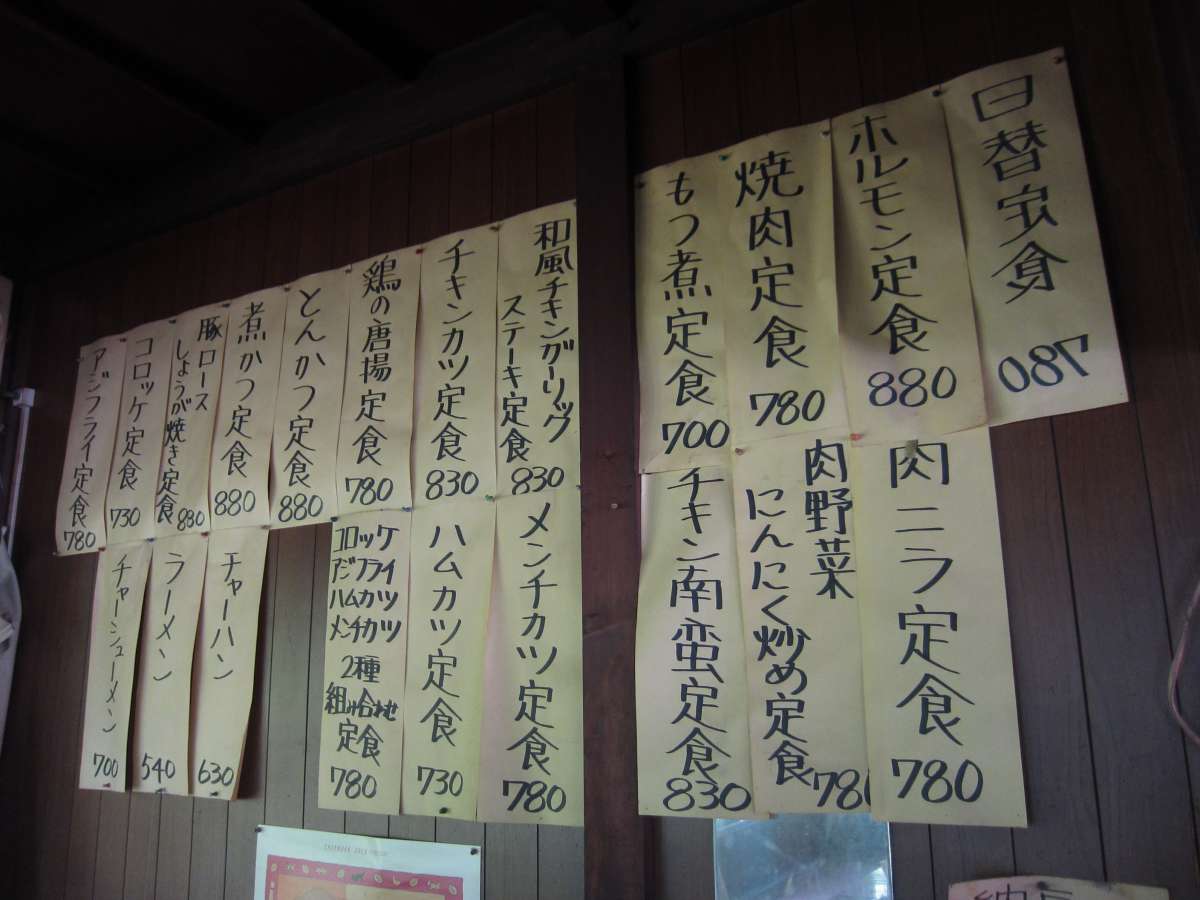 日替定食
780
ホルモン定食
880
焼肉定食
780
もつ煮定食
700
肉ニラ定食
780
肉野菜
にんにく炒め定食
780
チキン南蛮定食
830
和風チキンガーリック
ステーキ定食
830
チキンカツ定食
830
鶏の唐揚定食
780
とんかつ定食
880
煮かつ定食
880
豚ロース
しょうが焼き定食
880
コロッケ定食
730
アジフライ定食
780
メンチカツ定食
780
ハムカツ定食
730
コロッケ
アジフライ
ハムカツ
メンチカツ
2種
組み合わせ
定食
780
チャーハン
630
ラーメン
540
チャーシューメン
700